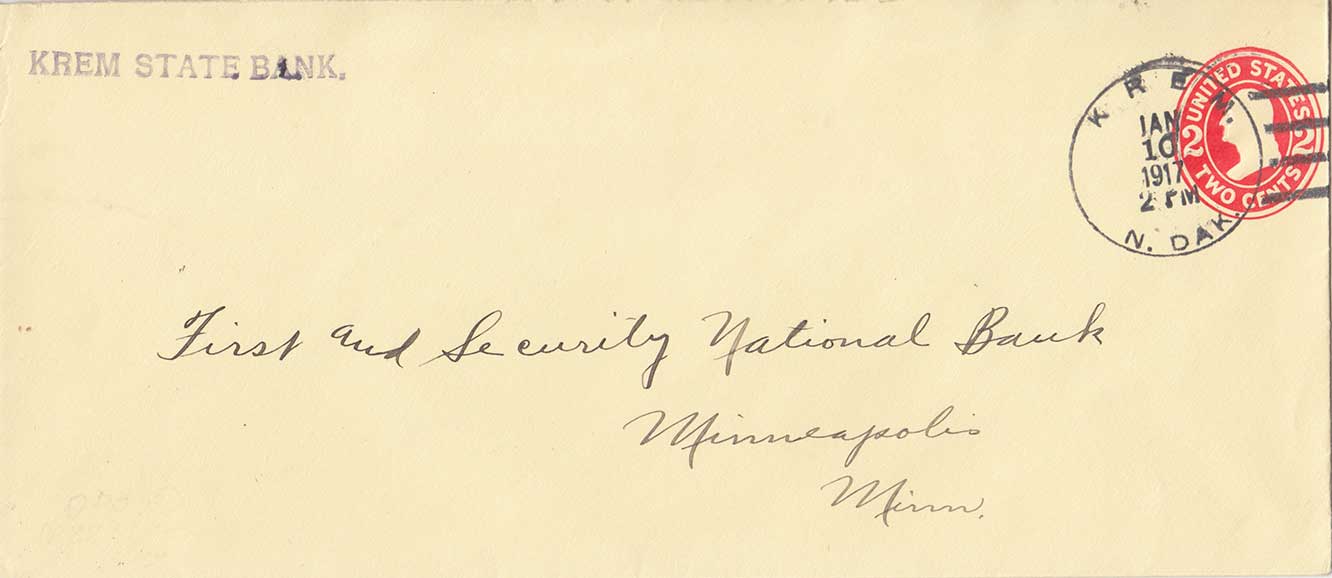 KREM STATE BANK.
KREM.
JAN
10
1917
2 PM
N. DAK.
UNITED STATES
2 2
TWO CENTS
First and Security National Bank
Minneapolis
Minn.